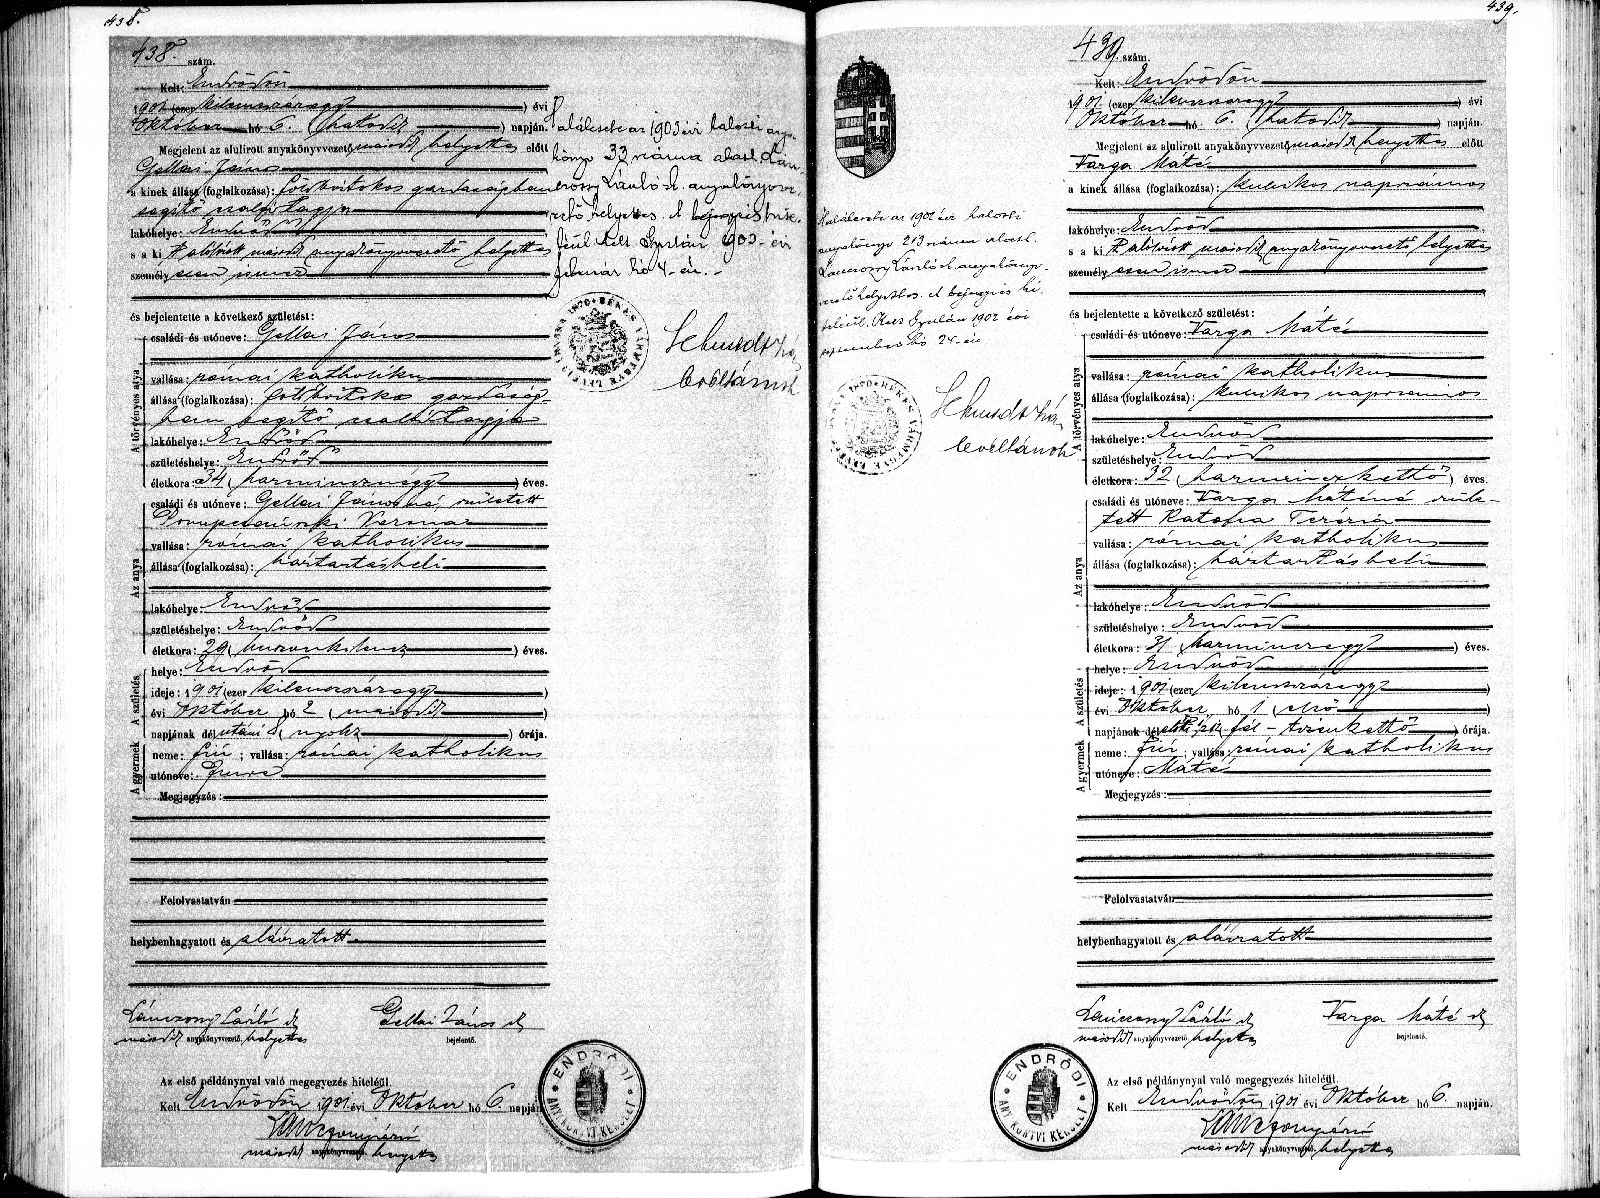 438.
438. szám.
Kelt: Endrődön
1901 (ezer kilenczszázegy) évi
Október hó 6. (hatodik) napján.
Megjelent az alulirott anyakönyvvezető második helyettes előtt
Gellai János
a kinek állása (foglalkozása): földbirtokos gazdaságban
segítő családtagja
lakóhelye: Endrőd
s a ki t alólirott második anyakönyvvezető helyettes
személyesen ismer
és bejelentette a következő születést:
A törvényes atya
családi és utóneve: Gellai János
vallása: római katholikus
állása (foglalkozása): földbirtokos gazdaság-
ban segítő családtagja
lakóhelye: Endrőd
születéshelye: Endrőd
életkora: 34 (harmincznégy) éves.
Az anya
családi és utóneve: Gellai Jánosné, született
vallása: római katholikus
állása (foglalkozása): háztartásbeli
lakóhelye: Endrőd
születéshelye: Endrőd
életkora: 29 (huszonkilencz) éves.
A gyermek A születés
helye: Endrőd
ideje: 1901 (ezer kilenczszázegy)
évi Október hó 2 (második)
napjának dél utáni 8 (nyolcz) órája.
neme: fiú; vallása: római katholikus
utóneve: Imre
Megjegyzés:
Felolvastatván
helybenhagyatott és aláiratott.
Lánczony László sk
második anyakönyvvezető helyettes
Gellai János sk
bejelentő.
Az első példánynyal való megegyezés hiteléül.
Kelt Endrődön 1901 évi Október hó 6. napján
második anyakönyvvezető helyettes
ENDRŐDI ANYAKÖNYVI KERÜLET
Halálesete az 1903 évi halotti anya-
könyv 33 száma alatt. Lán-
czony László sk. anyakönyvve-
zető helyettes. A bejegyzés hite-
léül. Kelt Gyulán 1903. évi
február hó 4-én.
BÉKÉS VÁRMEGYE LEVÉLTÁRA 1870
levéltárnok
439.
439. szám.
Kelt: Endrődön
1901. (ezer kilenczszázegy) évi
Október hó 6. (hatodik) napján.
Megjelent az alulirott anyakönyvvezető második helyettes előtt
Varga Máté
a kinek állása (foglalkozása): kubikos napszámos
lakóhelye: Endrőd
s a ki t alólirott második anyakönyvvezető helyettes
személyesen ismer
és bejelentette a következő születést:
A törvényes atya
családi és utóneve: Varga Máté
vallása: római katholikus
állása (foglalkozása): kubikos napszámos
lakóhelye: Endrőd
születéshelye: Endrőd
életkora: 32 (harminczkettő) éves.
Az anya
családi és utóneve: Varga Máténé szüle-
tett Katona Terézia
vallása: római katholikus
állása (foglalkozása): háztartásbeli
lakóhelye: Endrőd
születéshelye: Endrőd
életkora: 31 (harminczegy) éves.
A gyermek A születés
helye: Endrőd
ideje: 1901 (ezer kilenczszázegy)
évi Október hó 1 (első)
napjának dél előtti fél - tizenkettő órája.
neme: fiú; vallása: római katholikus
utóneve: Máté
Megjegyzés:
Felolvastatván
helybenhagyatott és aláiratott
Lánczony László sk
második anyakönyvvezető, helyettes
Varga Máté sk
bejelentő.
Az első példánynyal való megegyezés hiteléül.
Kelt Endrődön 1901 évi Október hó 6. napján.
második anyakönyvvezető, helyettes
ENDRŐDI ANYAKÖNYVI KERÜLET
Halálesete az 1902 évi halotti
anyakönyv 213 száma alatt.
Lánczony László sk. anyakönyv-
vezető helyettes. A bejegyzés hi-
teléül. Kelt Gyulán 1902 évi
szeptember hó 24-én
BÉKÉS VÁRMEGYE LEVÉLTÁRA 1870
levéltárnok